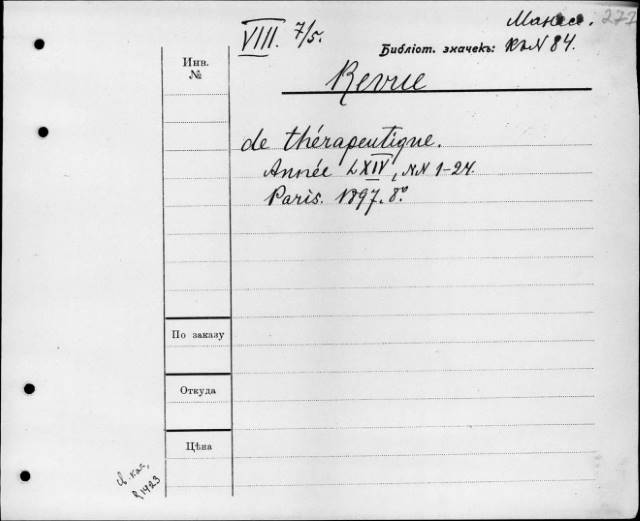 VIII. 7/5.
Библіот. значекъ: КъN 84.
Инв.
№
Revue
de thérapeutique.
Année LXIV, NN 1-24.
Paris. 1897. 8°
По заказу
Откуда
Цѣна